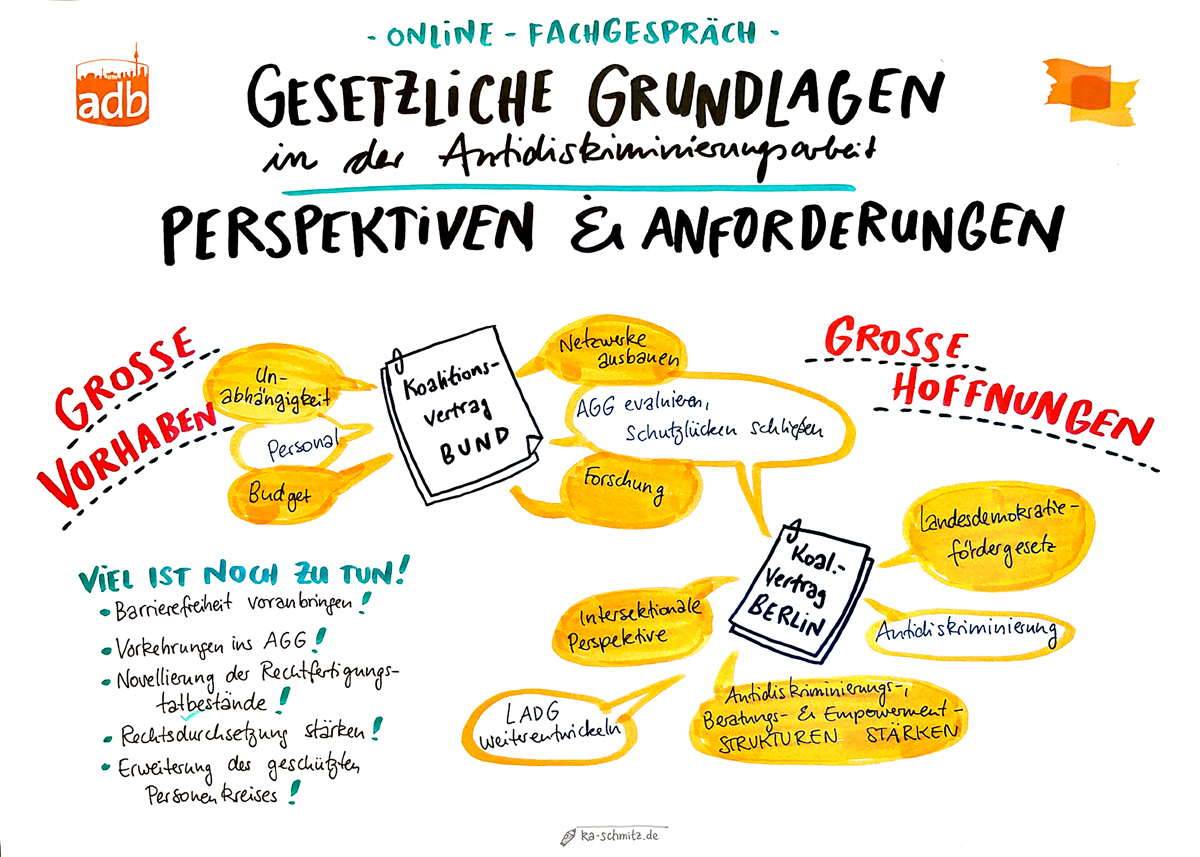 - ONLINE - FACHGESPRÄCH -
adb
GESETZLICHE GRUNDLAGEN
in der Antidiskriminierungsarbeit
PERSPEKTIVEN & ANFORDERUNGEN
GROSSE
VORHABEN
Un-
abhängigkeit
Personal
Budget
Koalitions-
vertrag
BUND
Netzwerke
ausbauen
AGG evaluieren,
Schutzlücken schließen
Forschung
GROSSE
HOFFNUNGEN
Koal.-
Vertrag
BERLIN
Landesdemokratie-
fördergesetz
Antidiskriminierung
Intersektionale
Perspektive
LADG
weiterentwickeln
Antidiskriminierungs-,
Beratungs- & Empowerment-
STRUKTUREN STÄRKEN
VIEL IST NOCH ZU TUN!
• Barrierefreiheit voranbringen!
• Vorkehrungen ins AGG!
• Novellierung der Rechtfertigungs-
tatbestände!
• Rechtsdurchsetzung stärken!
• Erweiterung des geschützten
Personenkreises!
ka-schmitz.de